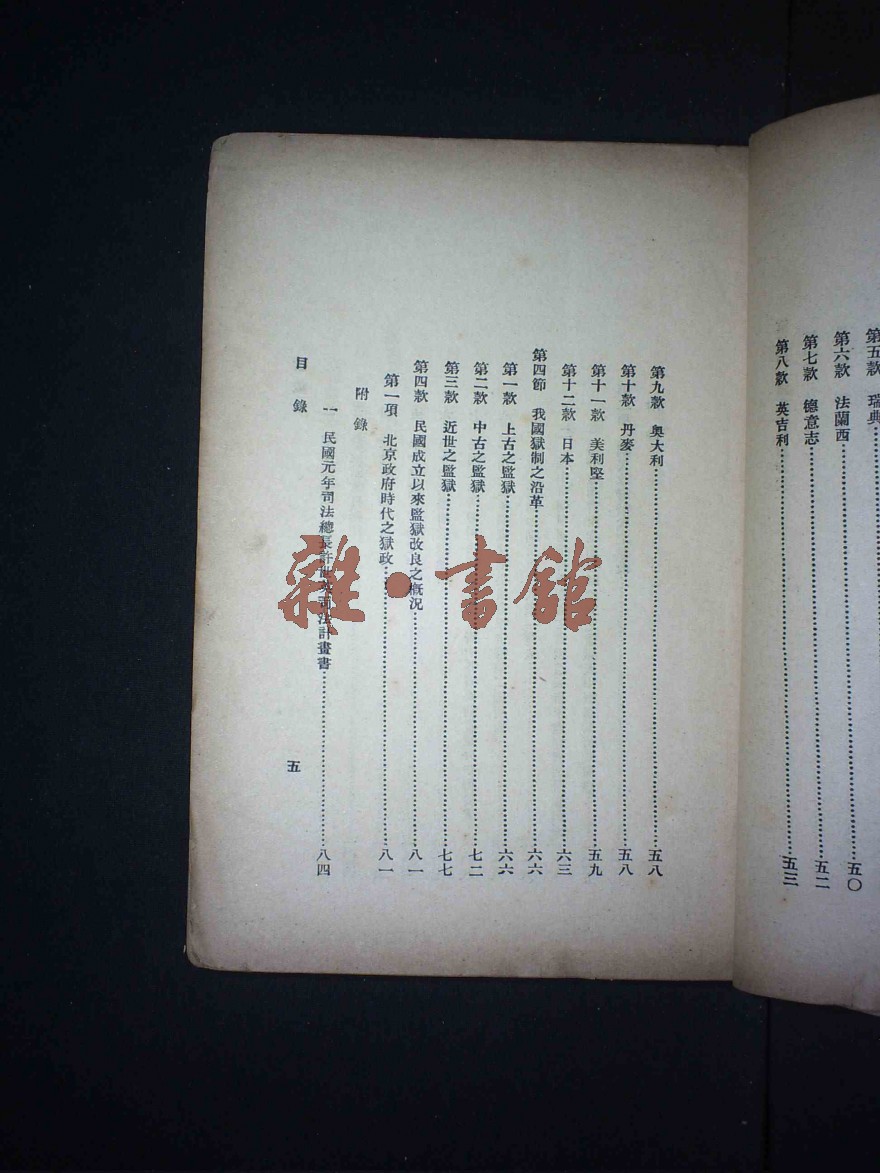 第五款 瑞典
第六款 法蘭西……五〇
第七款 德意志……五二
第八款 英吉利……五三
第九款 奧大利……五八
第十款 丹麥……五八
第十一款 美利堅……五九
第十二款 日本……六三
第四節 我國獄制之沿革……六六
第一款 上古之監獄……六六
第二款 中古之監獄……七二
第三款 近世之監獄……七七
第四款 民國成立以來監獄改良之概況……八一
第一項 北京政府時代之獄政……八一
附錄
一 民國元年司法總長許世英司法計畫書……八四
目錄
五
雜·書館